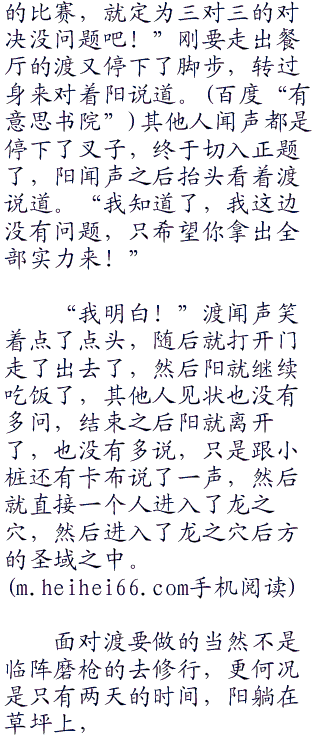 的比赛，就定为三对三的对
决没问题吧！”刚要走出餐
厅的渡又停下了脚步，转过
身来对着阳说道。(百度“有
意思书院”)其他人闻声都是
停下了叉子，终于切入正题
了，阳闻声之后抬头看着渡
说道。“我知道了，我这边
没有问题，只希望你拿出全
部实力来！”
“我明白！”渡闻声笑
着点了点头，随后就打开门
走了出去了，然后阳就继续
吃饭了，其他人见状也没有
多问，结束之后阳就离开
了，也没有多说，只是跟小
桩还有卡布说了一声，然后
就直接一个人进入了龙之
穴，然后进入了龙之穴后方
的圣域之中。
(m.heihei66.com手机阅读)
面对渡要做的当然不是
临阵磨枪的去修行，更何况
是只有两天的时间，阳躺在
草坪上，